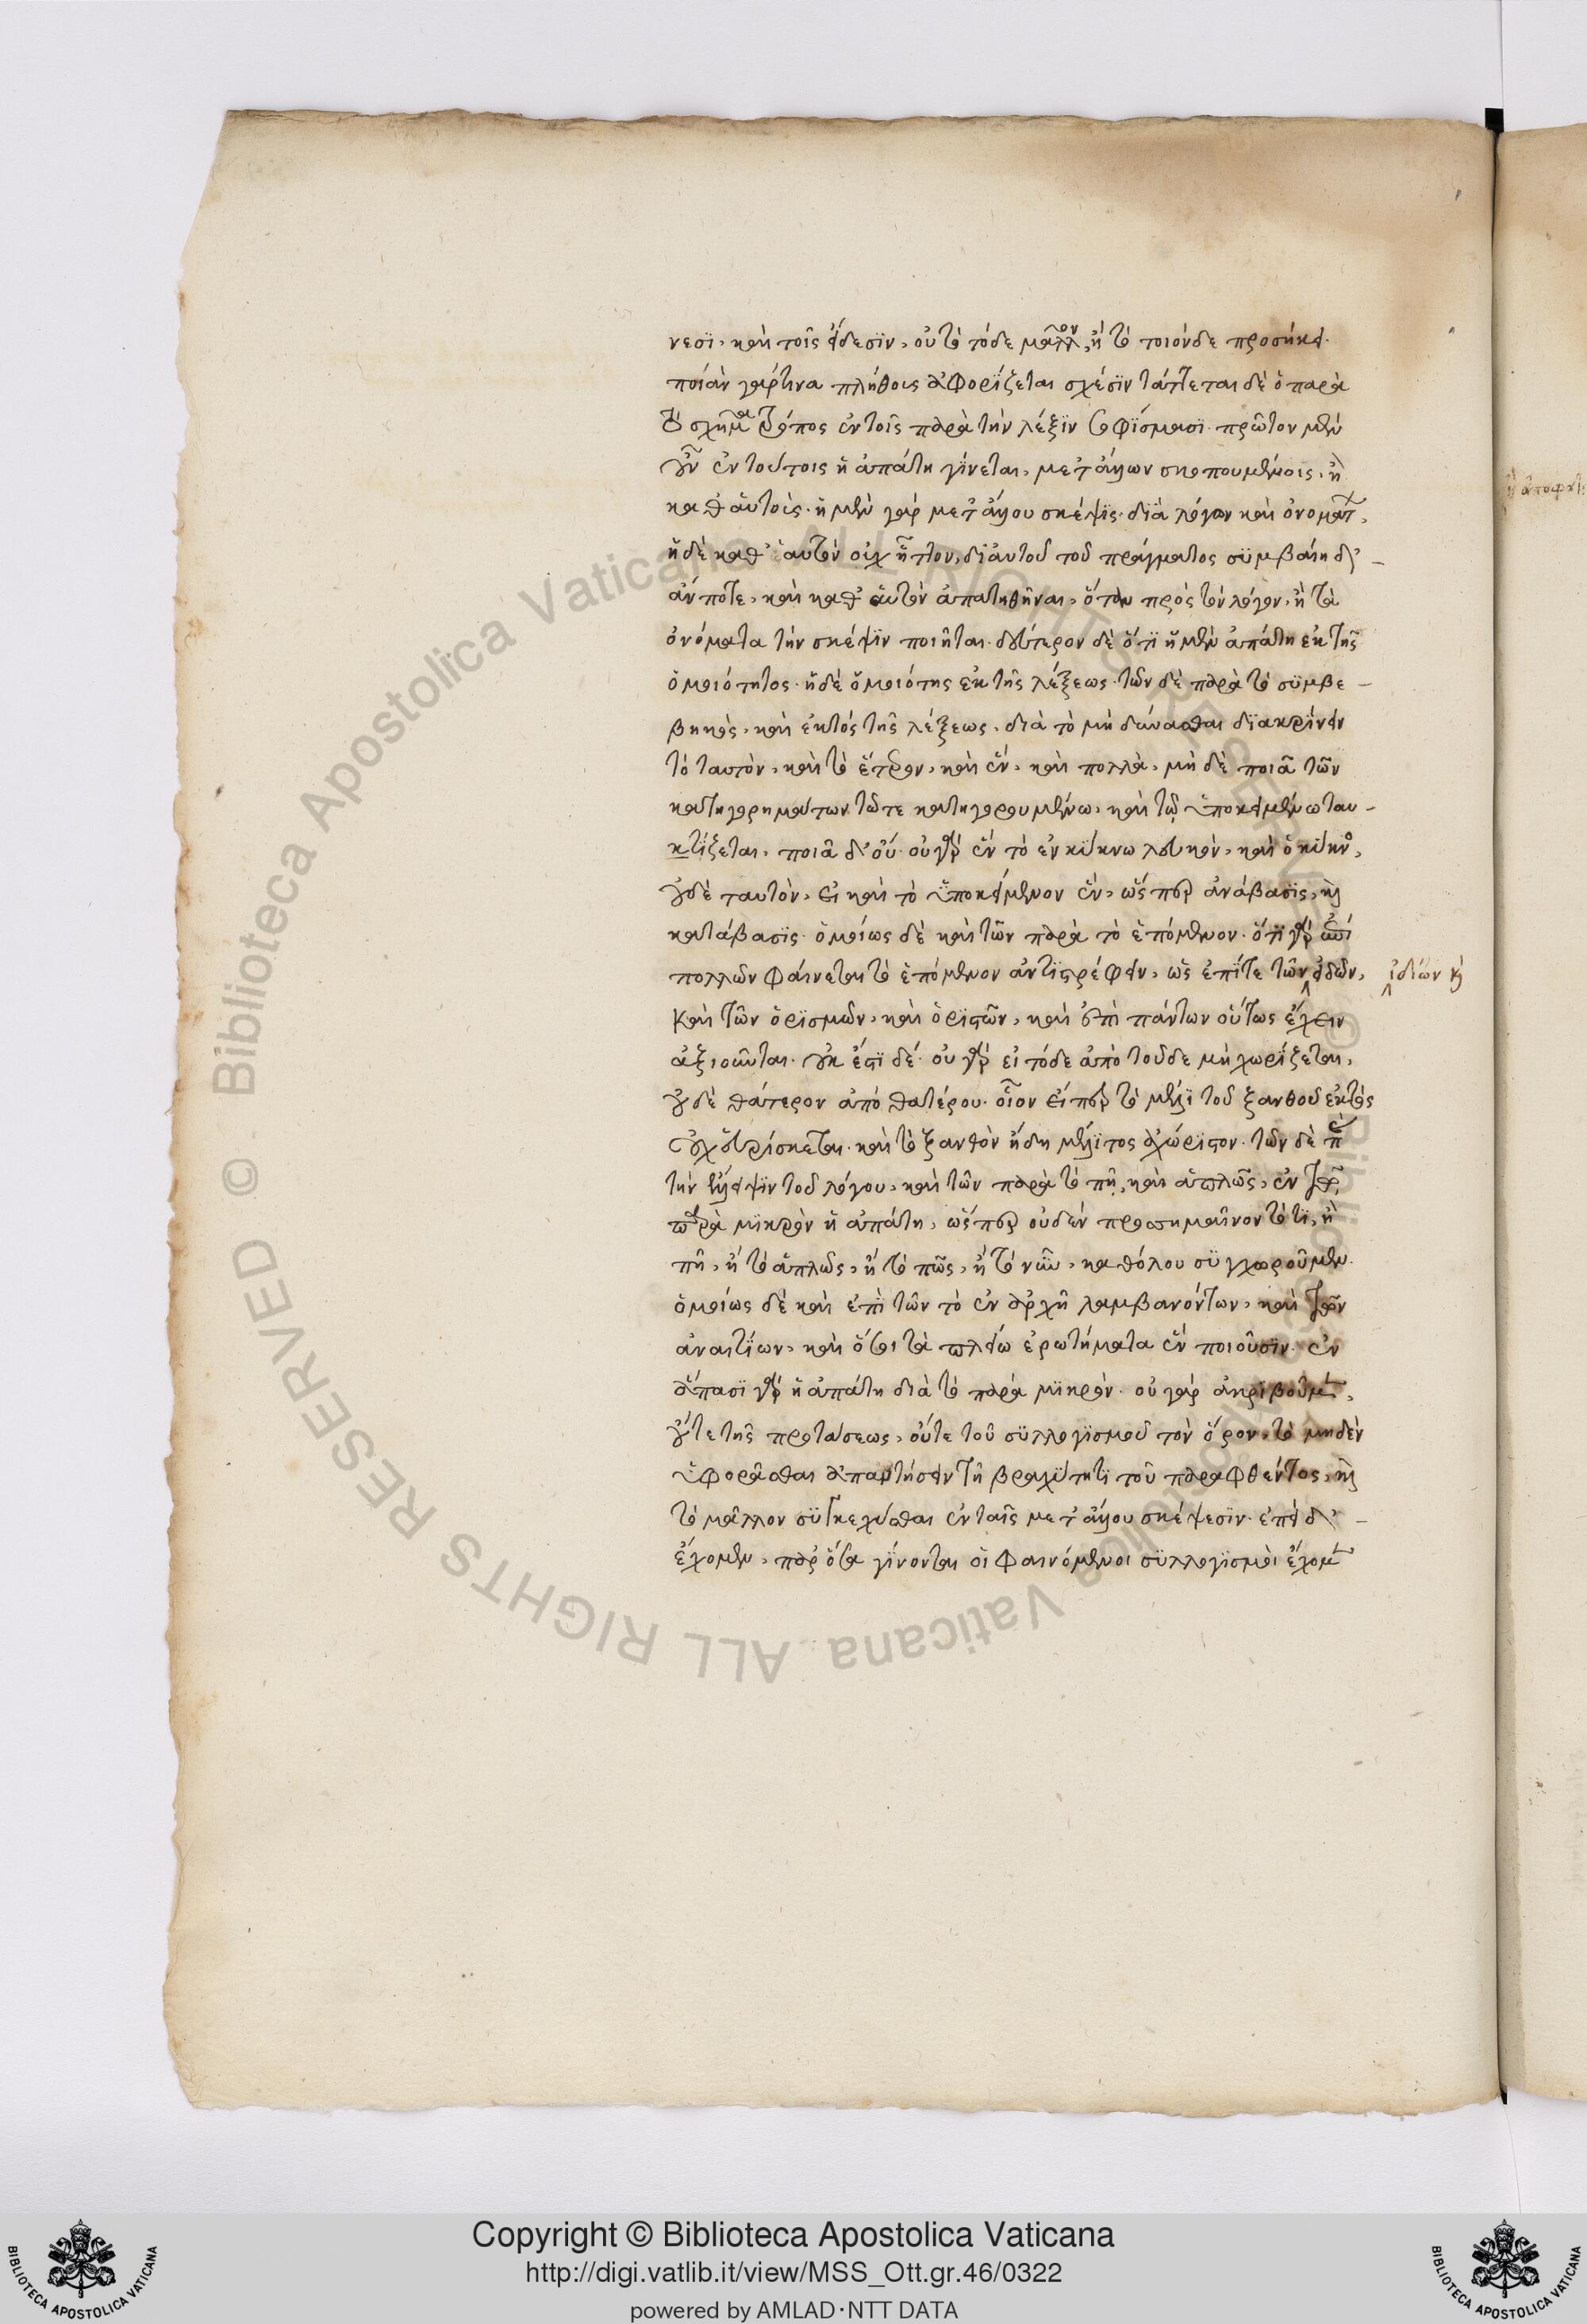 νεσϊ, καὶ τοῖς εἴδεσϊν, οὐ τὸ τόδε μᾶλλον, ἢ τὸ τοιόνδε προσήκει.
ποίαν γάρ τινα πλήθους ἀφορίζεται σχέσϊν τάττεται δὲ ὁ παρὰ
τὸ σχῆμα τρόπος ἐν τοῖς παρὰ τὴν λέξϊν σοφίσμασϊ. πρῶτον μὲν
οὖν ἐν τούτοις ἡ ἀπάτη γίνεται, μετ' ἄλλων σκοπουμένοις, ἢ
καθ' αὑτοὺς. ἡ μὲν γὰρ μετ' ἄλλου σκέψϊς διὰ λόγων καὶ ὀνομάτων,
ἡ δὲ καθ' ἑαυτὸν οὐχ ἧττον, δι' αὐτοῦ τοῦ πράγματος συμβαίη δ' –
ἄν ποτε, καὶ καθ' αὑτὸν ἀπατηθῆναι, ὅταν πρὸς τὸν λόγον, ἢ τὰ
ὀνόματα τὴν σκέψϊν ποιῆται. δεύτερον δὲ ὅτι ἡ μὲν ἀπάτη ἐκ τῆς
ὁμοιότητος. ἡ δὲ ὁμοιότης ἐκ τῆς λέξεως. τῶν δὲ παρὰ τὸ συμβε –
βηκὸς, καὶ ἐκτός τῆς λέξεως, διὰ τὸ μὴ δύνασθαι διακρίνειν
τὸ ταυτὸν, καὶ τὸ ἕτερον, καὶ ἓν, καὶ πολλὰ, μὴ δὲ ποῖα τῶν
κατηγορημάτων τῶ τε κατηγορουμένω, καὶ τῷ ὑποκειμένω ταυ –
τίζεται, ποῖα δ' οὔ. οὐ γὰρ ἓν τὸ ἐν κύκνω λευκὸν, καὶ ὁ κύκνος,
οὐδὲ ταυτὸν, εἰ καὶ τὸ ὑποκείμενον ἓν, ὥσπερ ἀνάβασϊς, καὶ
κατάβασϊς. ὁμοίως δὲ καὶ τῶν παρὰ τὸ ἑπόμενον. ὅτι γὰρ ἐπὶ
πολλῶν φαίνεται τὸ ἑπόμενον ἀντιστρέφειν, ὡς ἐπί τε τῶν εἰδῶν, ἰδίων καὶ
καὶ τῶν ὁρισμῶν, καὶ ὁριστῶν, καὶ ἐπὶ πάντων οὕτως ἔχειν
ἀξιοῦνται. οὐκ ἔστϊ δέ. οὐ γὰρ εἰ τόδε ἀπὸ τοῦδε μὴ χωρίζεται,
οὐδὲ θάτερον ἀπὸ θατέρου. οἷον εἴπερ τὸ μέλϊ τοῦ ξανθοῦ ἐκτὸς
οὐχ εὑρίσκεται. καὶ τὸ ξανθὸν ἤδη μέλϊτος ἀχώριστον. τῶν δὲ παρὰ
τὴν ἔλλειψϊν τοῦ λόγου, καὶ τῶν παρὰ τὸ πῆ, καὶ ἁπλῶς, ἐν τῶ
παρὰ μϊκρὸν ἡ ἀπάτη, ὥσπερ οὐδὲν προσημαῖνον τὸ τὶ, ἢ
πῆ, ἢ τὸ ἁπλῶς, ἢ τὸ πῶς, ἢ τὸ νῦν, καθόλου συγχωροῦμεν.
ὁμοίως δὲ καὶ ἐπὶ τῶν τὸ ἐν ἀρχῆ λαμβανόντων, καὶ τῶν
ἀναιτίων, καὶ ὅσοι τὰ πλείω ἐρωτήματα ἓν ποιοῦσϊν. ἐν
ἅπασϊ γὰρ ἡ ἀπάτη διὰ τὸ παρὰ μϊκρὸν. οὐ γὰρ ἀκριβοῦμεν,
οὔτε τῆς προτάσεως, οὔτε τοῦ συλλογϊσμοῦ τὸν ὅρον, τὸ μηδὲν
ὑφορᾶσθαι ἀπαρτήσειν τῆ βραχύτητϊ τοῦ παραφθέντος, καὶ
τὸ μᾶλλον συγκεχύσθαι ἐν ταῖς μετ' ἄλλου σκέψεσϊν. ἐπεὶ δ' –
ἔχομεν, παρ' ὅσα γίνονται οἱ φαινόμενοι συλλογϊσμοὶ ἔχομεν